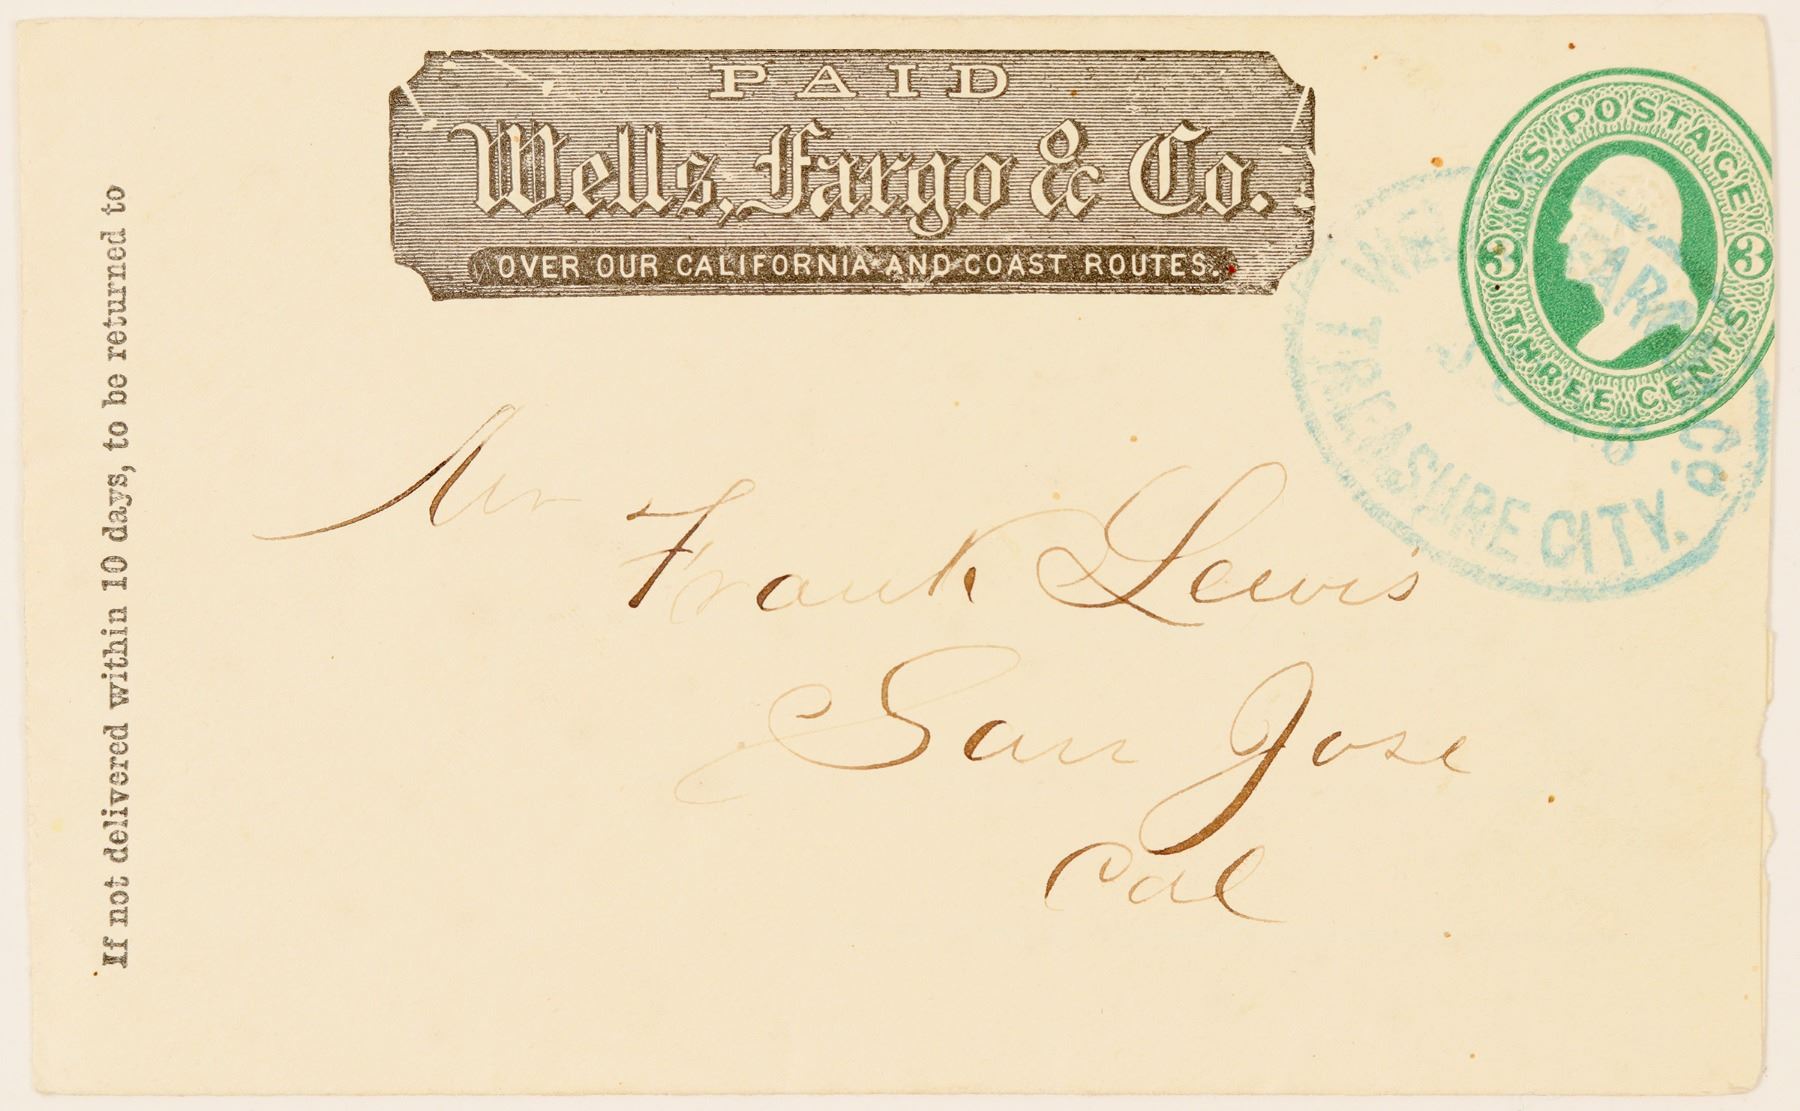 PAID
Wells, Fargo & Co.
OVER OUR CALIFORNIA AND COAST ROUTES.
U S POSTAGE
3 3
THREE CENTS
WELLS FARGO & CO.
TREASURE CITY.
If not delivered within 10 days, to be returned to
Mr
Frank Lewis
San Jose
Cal